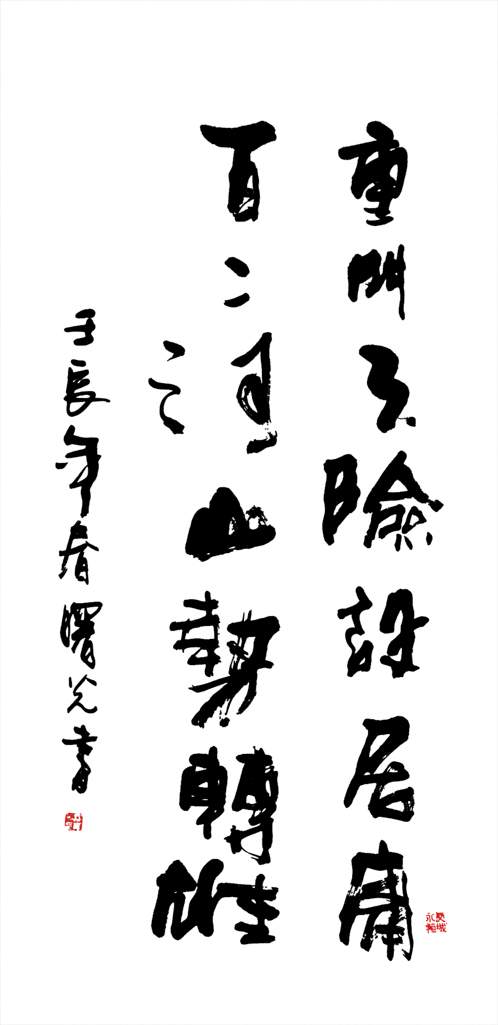 重門天險設居庸
百二河山勢轉雄
壬辰年春曙光書